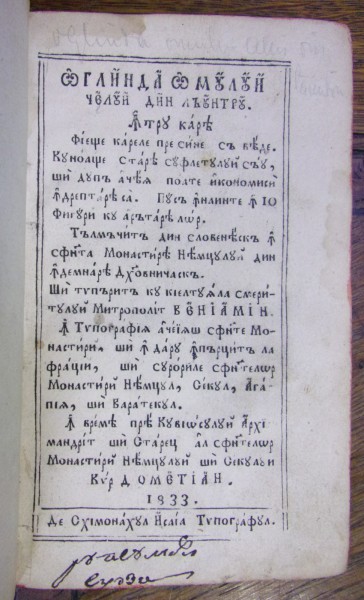 Ѡглинда ѡмꙋлꙋй
челꙋй дин лъꙋнтрꙋ.
Ꙟтрꙋ карѣ
Фіеще кареле пре сине съ вѣде.
Кꙋноаще старѣ сꙋфлетꙋлꙋй съꙋ,
ши дꙋпъ ачѣѧ поате икономиси
ꙟдрептарѣ са. Пꙋсъ ꙟнаинте ꙟ 10
Фигꙋри кꙋ арътаре лѡр.
Тълмъчитъ дин словенѣскъ ꙟ
сфѫнта Монастире Нѣмцꙋлꙋй дин
ꙟдемнаре дх҃овничаскъ.
Ши типъритъ кꙋ киелтꙋѧла смери-
тꙋлꙋй Митрополит ВЕНІАМИН.
Ꙟ Типографіѧ ачеіѧш сфинте Мо-
настири, ши ꙟ дарꙋ ꙟпърцитъ ла
фраціи, ши сꙋрориле сфинтелѡр
Монастири Нѣмцꙋл, Секꙋл, Ага-
піѧ, ши Варатекꙋл.
Ꙟ времѣ прѣ Кꙋвіѡсꙋлꙋй Архі-
мандрит ши Старец ал сфинтелѡр
Монастири Нѣмцꙋлꙋй ши Секꙋлꙋи
Кѵр ДОМЕТІАН.
1833.
Де Схімонахꙋл Исаіа Типографꙋл.